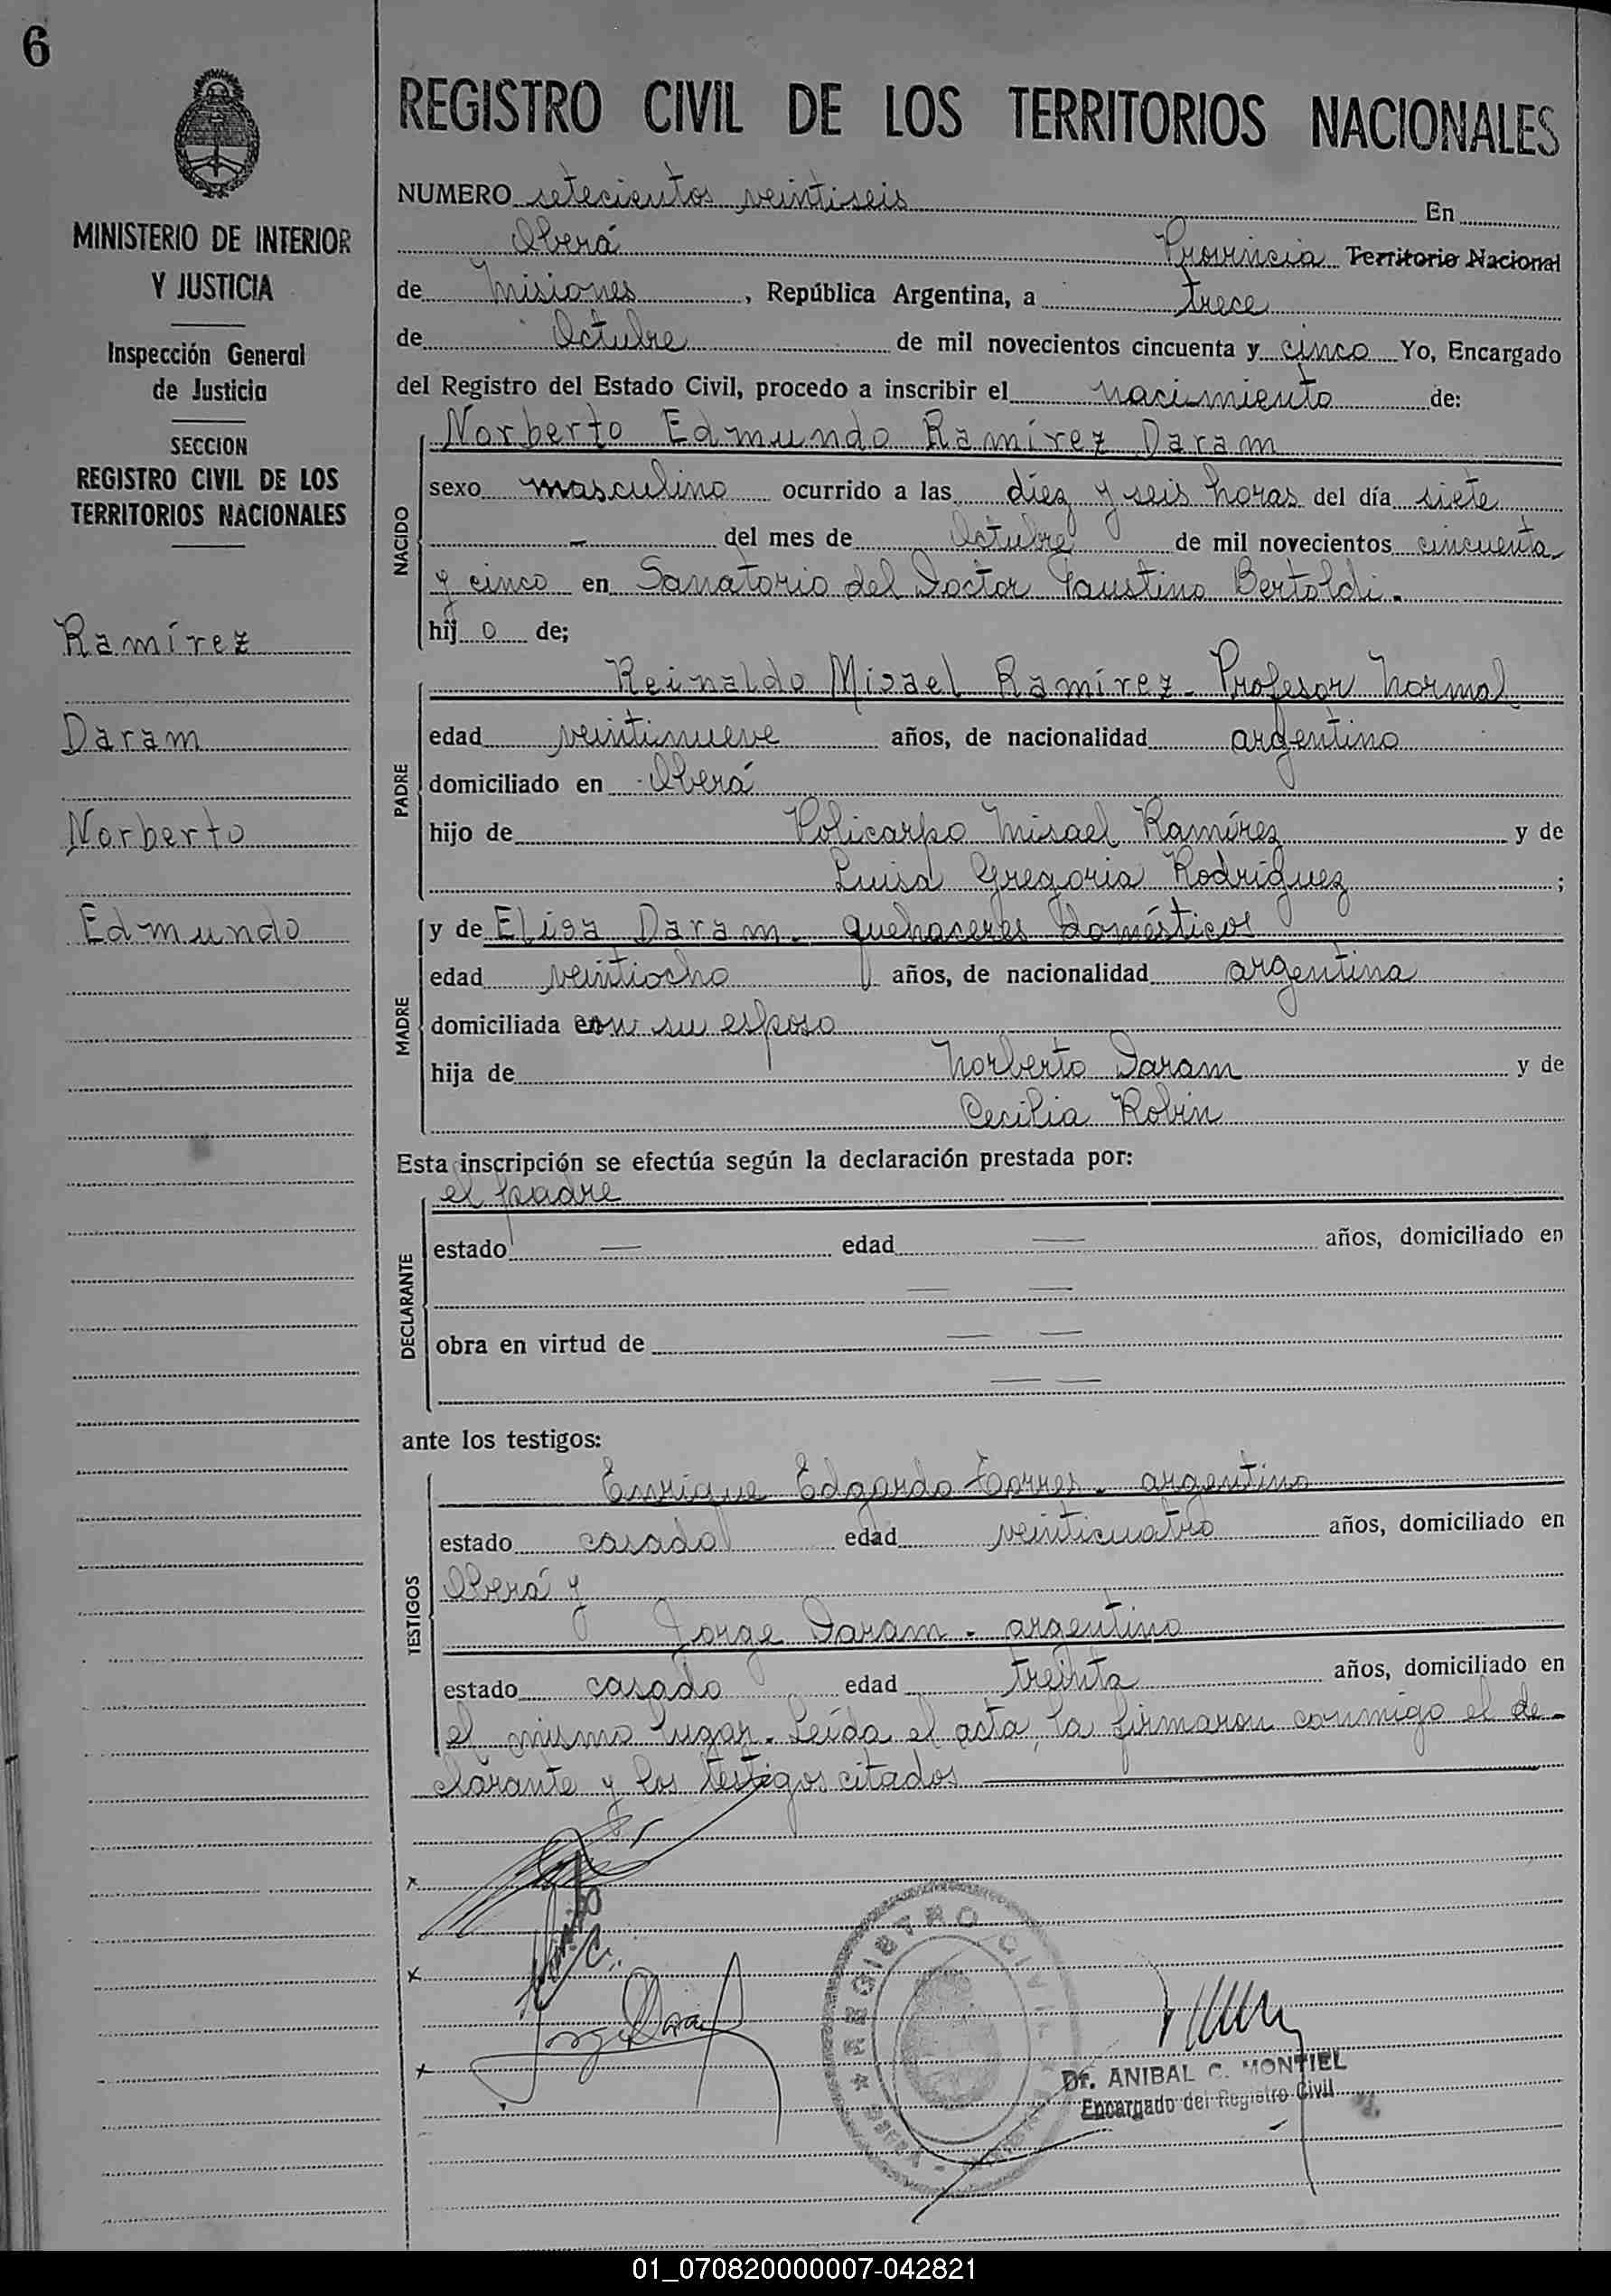 6
REGISTRO CIVIL DE LOS TERRITORIOS NACIONALES
MINISTERIO DE INTERIOR
Y JUSTICIA
Inspección General
de Justicia
SECCION
REGISTRO CIVIL DE LOS
TERRITORIOS NACIONALES
Ramírez
Daram
Norberto
Edmundo
NUMERO setecientos veintiseis En
Oberá Provincia Territorio Nacional
de Misiones, República Argentina, a trece
de Octubre de mil novecientos cincuenta y cinco Yo, Encargado
del Registro del Estado Civil, procedo a inscribir el nacimiento de:
NACIDO
Norberto Edmundo Ramírez Daram
sexo masculino ocurrido a las diez y seis horas del día siete
- del mes de Octubre de mil novecientos cincuenta
y cinco en Sanatorio del Doctor Faustino Bertoldi.
hij o de;
PADRE
Reinaldo Misael Ramírez - Profesor Normal
edad veintinueve años, de nacionalidad argentino
domiciliado en Oberá
hijo de Policarpo Misael Ramírez y de
Luisa Gregoria Rodríguez ;
MADRE
y de Elisa Daram - quehaceres domésticos
edad veintiocho años, de nacionalidad argentina
domiciliada con su esposo
hija de Norberto Daram y de
Cecilia Robin
Esta inscripción se efectúa según la declaración prestada por:
DECLARANTE
el padre
estado — edad — años, domiciliado en
— —
obra en virtud de — —
— —
ante los testigos:
TESTIGOS
Enrique Edgardo Torres - argentino
estado casado edad veinticuatro años, domiciliado en
Oberá y
Jorge Daram - argentino
estado casado edad treinta años, domiciliado en
el mismo lugar. Leída el acta, la firmaron conmigo el de-
clarante y los testigos citados
REGISTRO CIVIL
Dr. ANIBAL C. MONTIEL
Encargado del Registro Civil
01_070820000007-042821